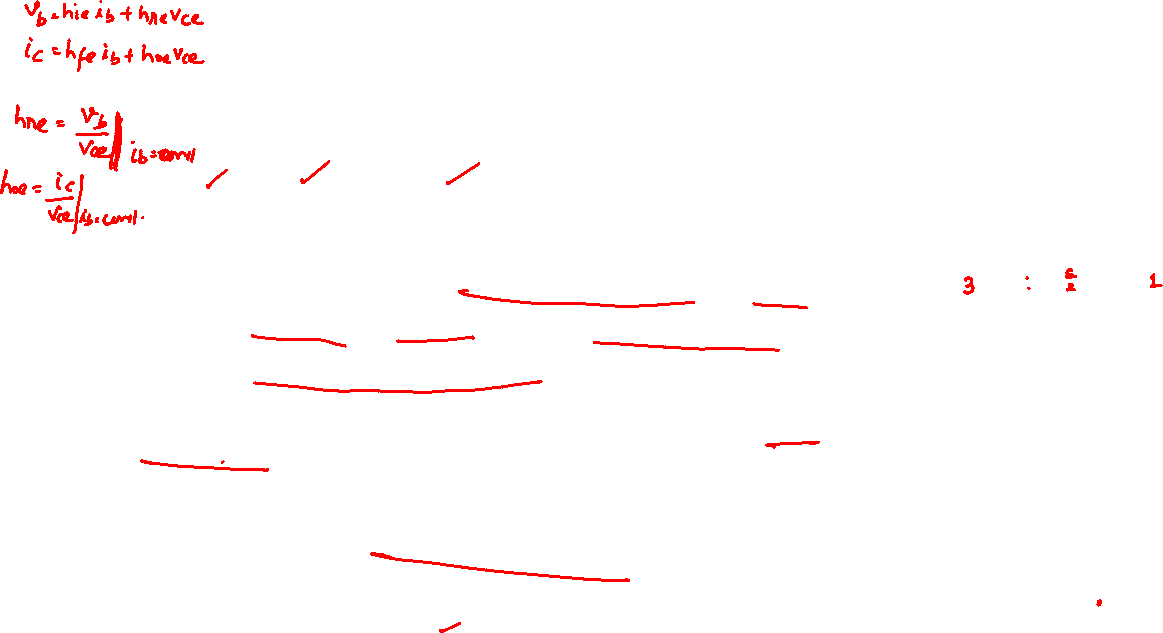 v_b = h_ie i_b + h_re v_ce
i_c = h_fe i_b + h_oe v_ce
h_re = v_b / v_ce | i_b =
h_oe = i_c / v_ce | i_b =
3 : 1